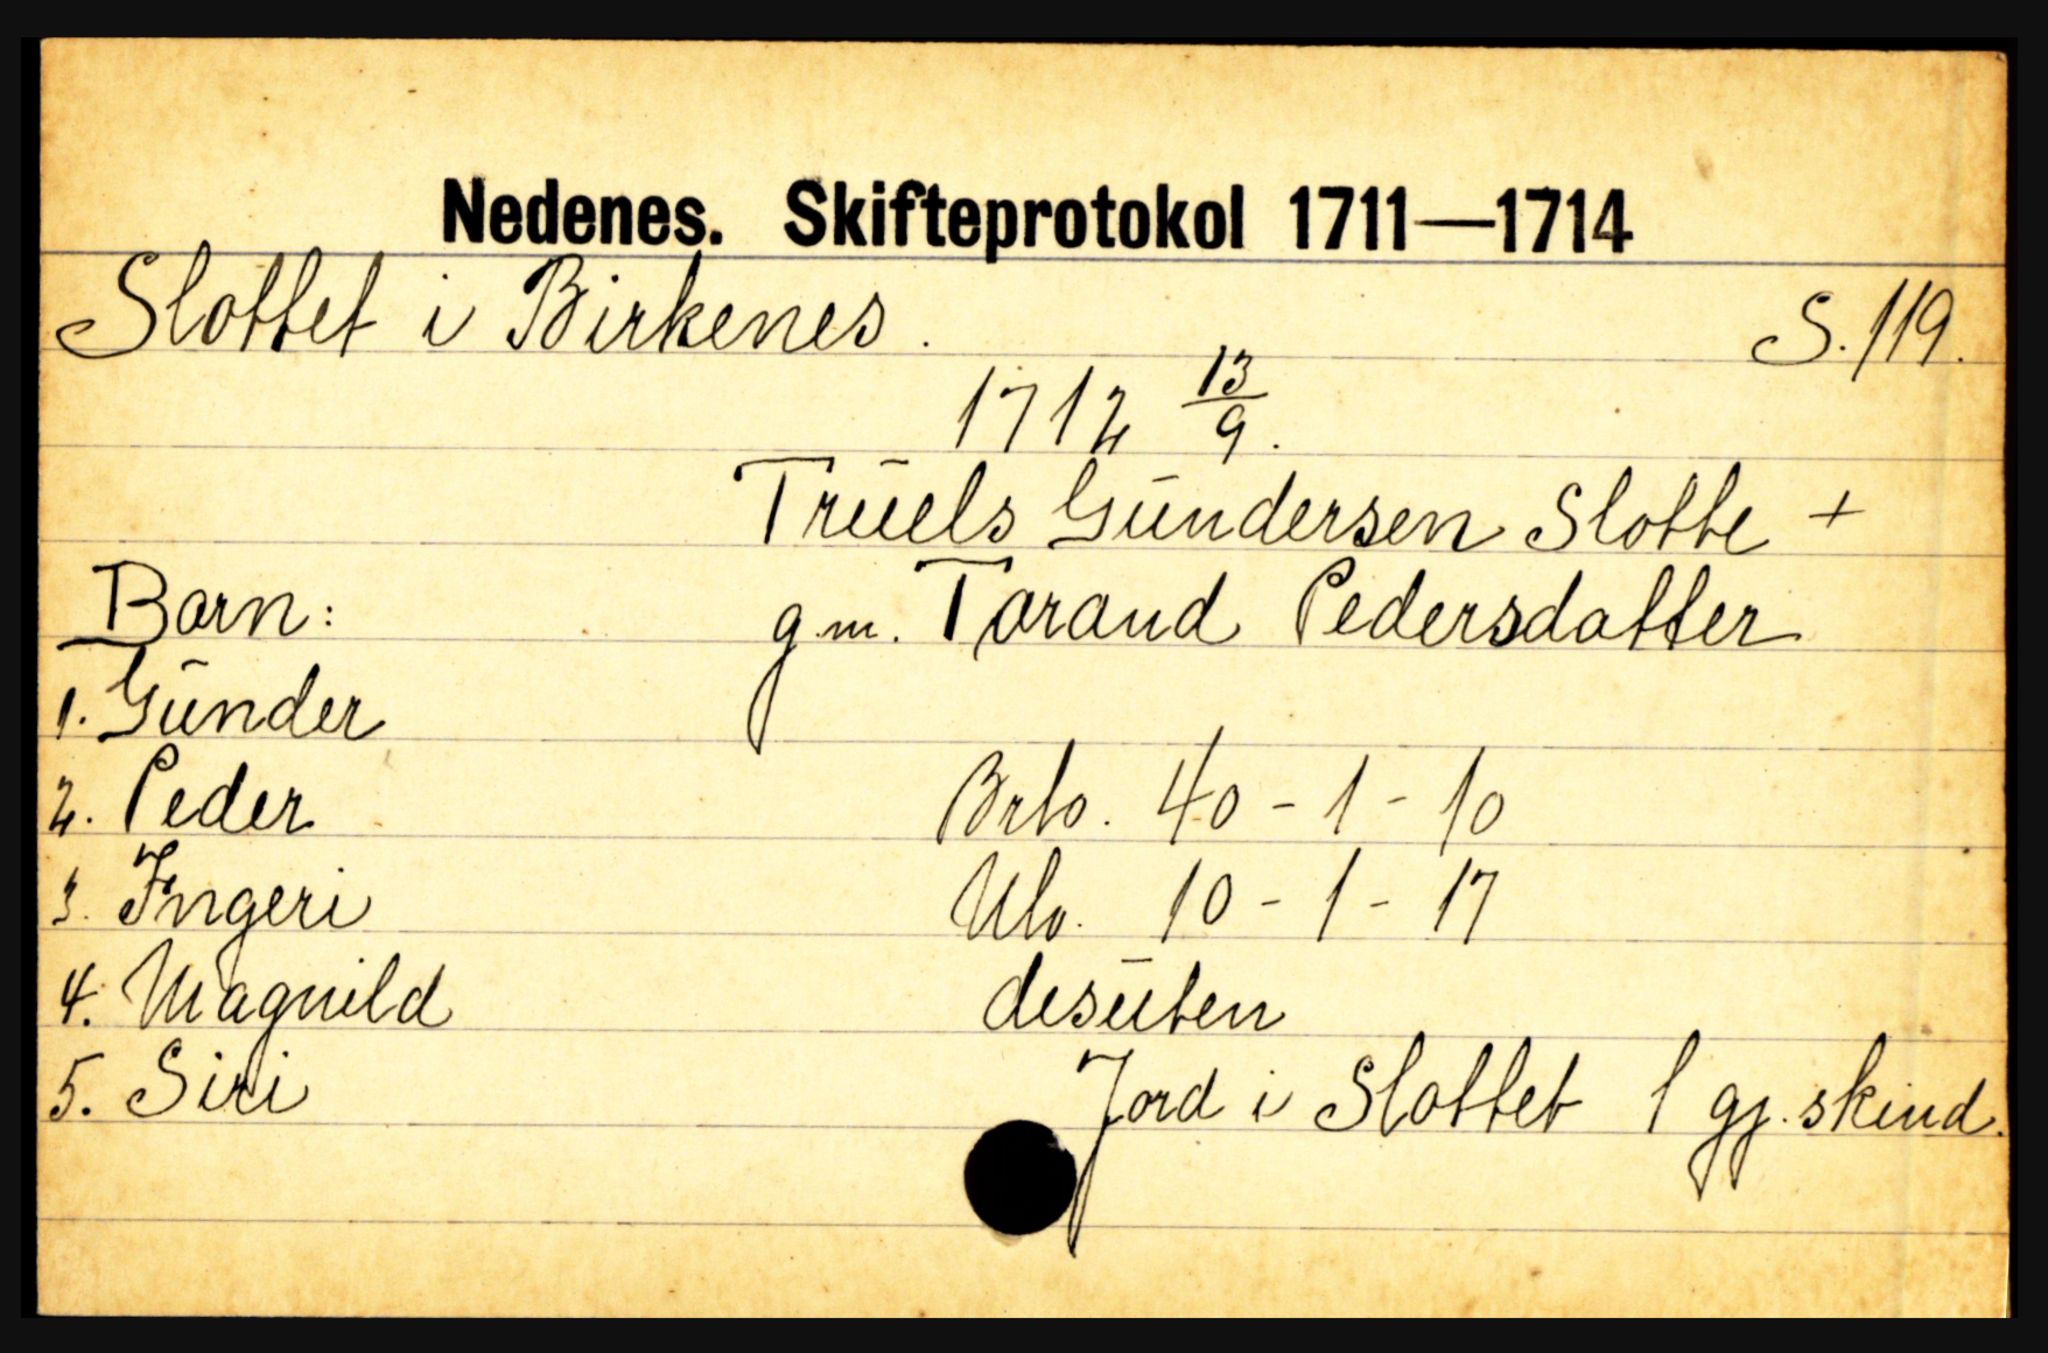 Nedenes. Skifteprotokol 1711—1714
Slottet i Birkenes. S. 119.
1712 13/9.
Truels Gundersen Slotte +
Born: g.m. Torand Pedersdatter
1. Gunder
2. Peder Brto. 40 - 1 - 10
3. Ingeri Nto. 10 - 1 - 17
4. Magnild desuten
5. Siri Jord i Slottet 1 gj. skind.